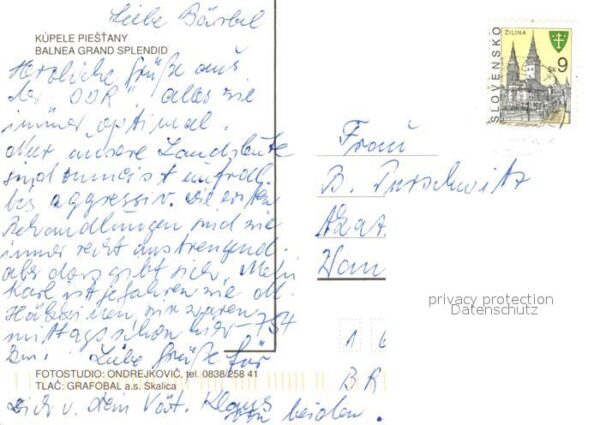 Liebe Bärbel
KÚPELE PIEŠŤANY
BALNEA GRAND SPLENDID
Herzliche Grüße aus
der "DDR", alles wie
immer optimal.
Nur unsere Landsleute
sind zumeist unfrdl.
bis aggressiv. Die ersten
Behandlungen sind wie
immer recht anstrengend,
aber das gibt sich. Mein
Karl ist gefahren wie
wir waren
mittags schon hier – 754
km. Liebe Grüße für
FOTOSTUDIO: ONDREJKOVIČ, tel. 0838/258 41
TLAČ: GRAFOBAL a.s. Skalica
Dich u. Dein Klaus
von beiden.
ŽILINA
SLOVENSKO
Sk 9
Frau
B.
privacy protection
Datenschutz
1 6
BR